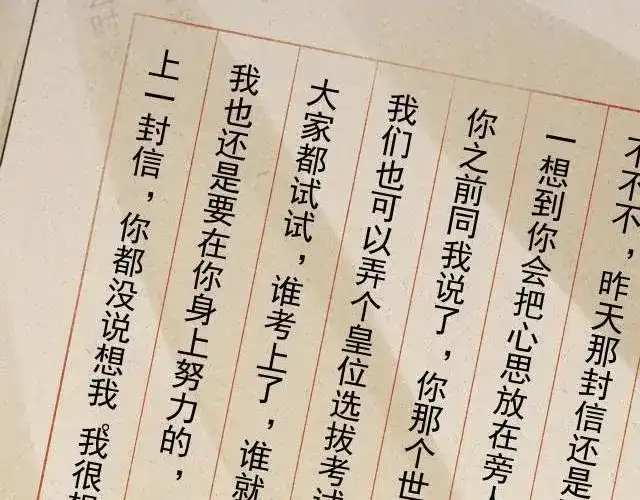 不不，昨天那封信还是
一想到你会把心思放在旁
你之前同我说了，你那个世
我们也可以弄个皇位选拔考试
大家都试试，谁考上了，谁就
我也还是要在你身上努力的，
上一封信，你都没说想我。我很